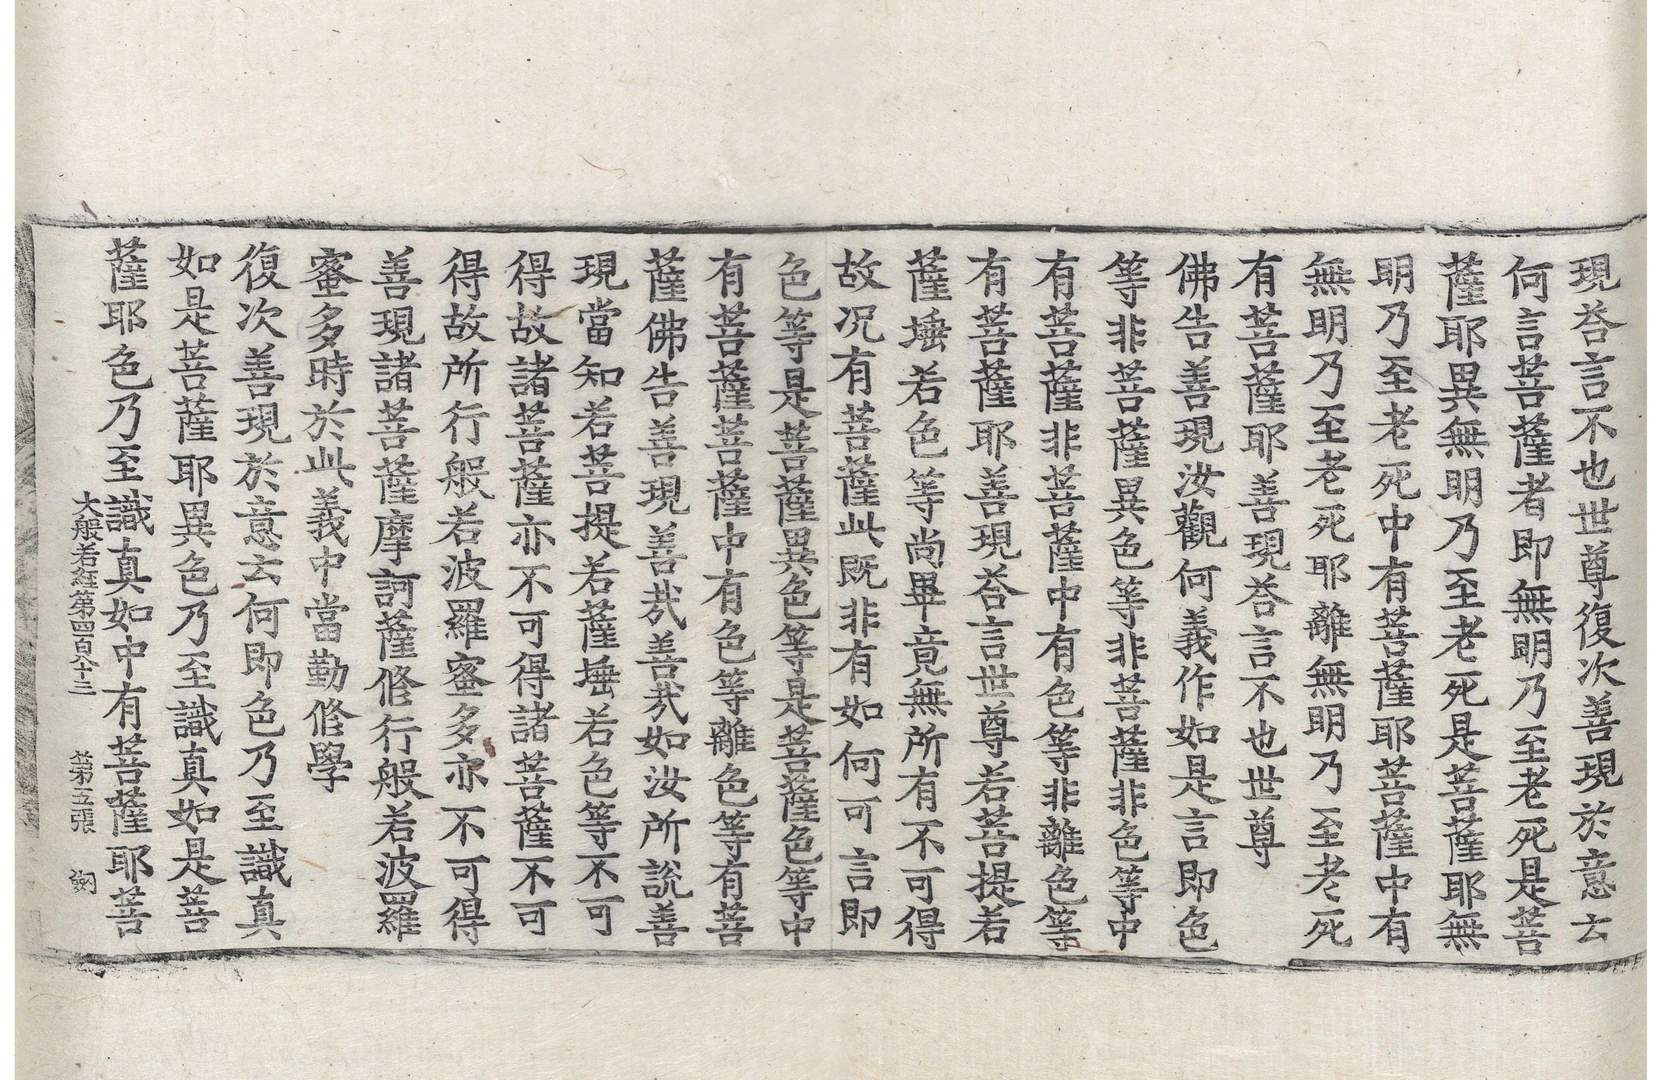 現荅言不也世尊復次善現於意云
何言菩薩者即無明乃至老死是菩
薩耶異無明乃至老死是菩薩耶無
明乃至老死中有菩薩耶菩薩中有
無明乃至老死耶離無明乃至老死
有菩薩耶善現荅言不也世尊
佛告善現汝觀何義作如是言即色
等非菩薩異色等非菩薩非色等中
有菩薩非菩薩中有色等非離色等
有菩薩耶善現荅言世尊若菩提若
薩埵若色等尚畢竟無所有不可得
故况有菩薩此既非有如何可言即
色等是菩薩異色等是菩薩色等中
有菩薩菩薩中有色等離色等有菩
薩佛告善現善哉善哉如汝所說善
現當知若菩提若薩埵若色等不可
得故諸菩薩亦不可得諸菩薩不可
得故所行般若波羅蜜多亦不可得
善現諸菩薩摩訶薩修行般若波羅
蜜多時於此義中當勤修學
復次善現於意云何即色乃至識真
如是菩薩耶異色乃至識真如是菩
薩耶色乃至識真如中有菩薩耶菩
大般若經第四百八十三 第五張 劒